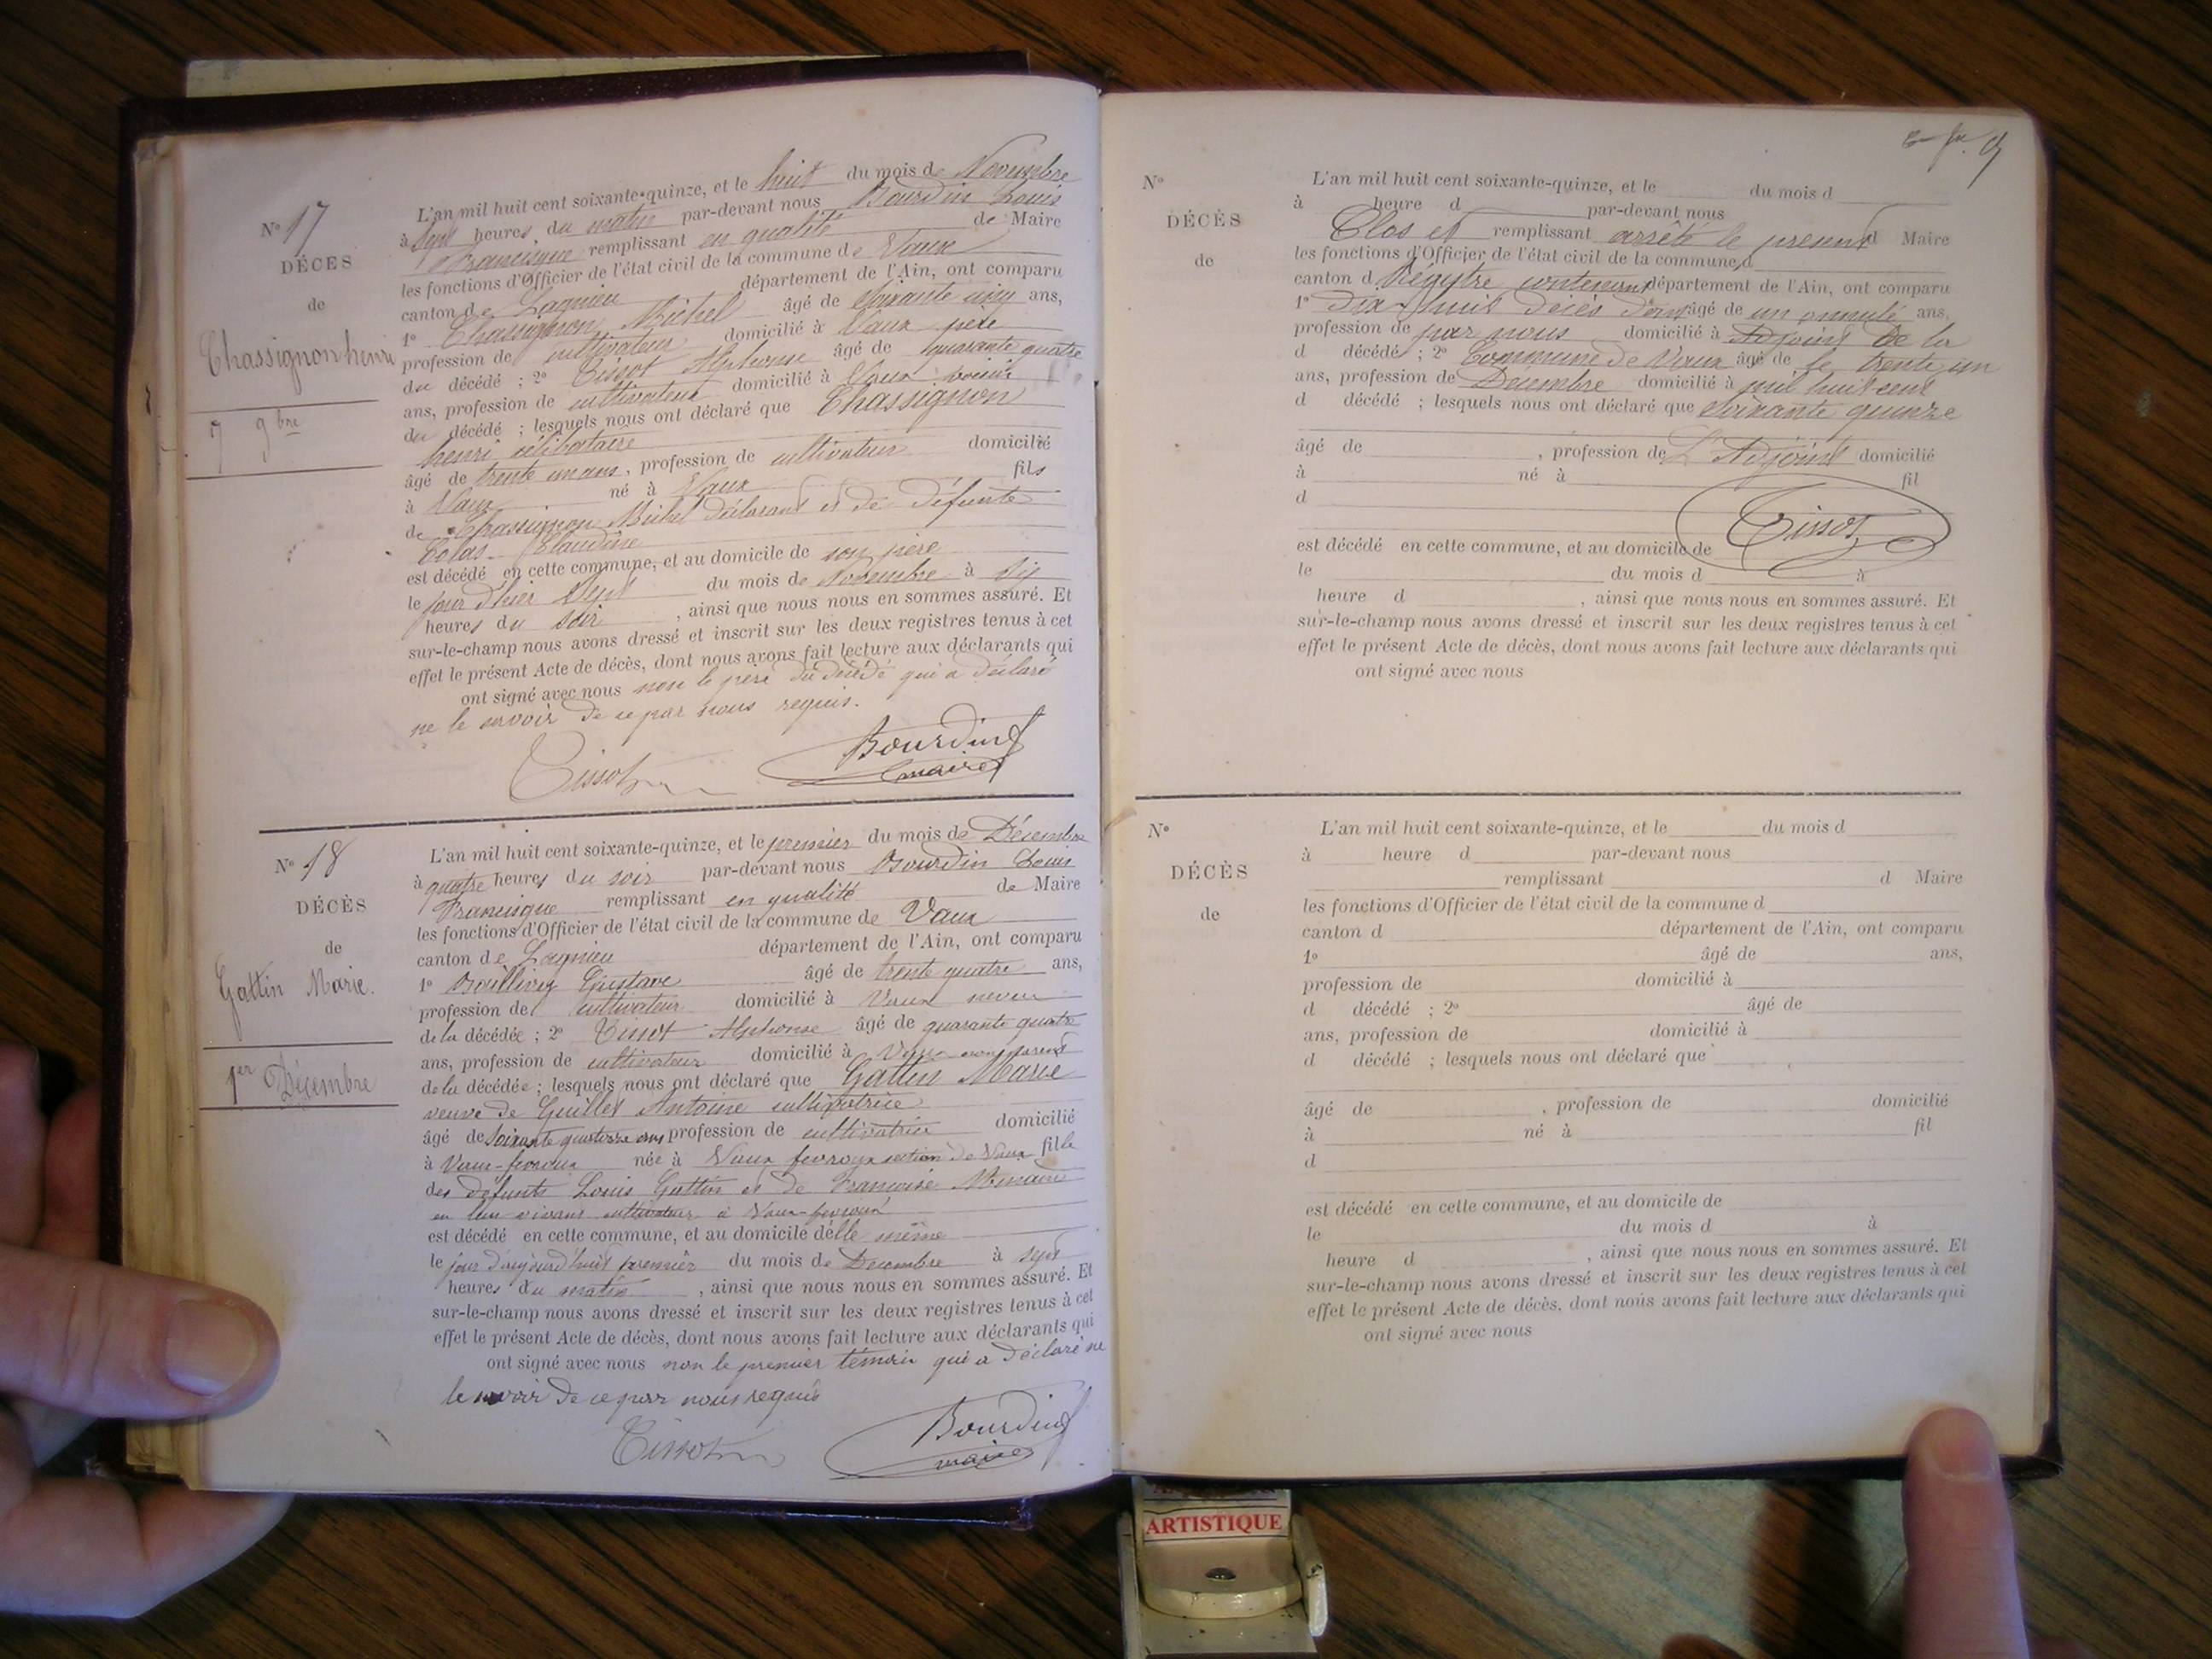 N° 17
DÉCÈS
de
Chassignon henri
7 9bre
L'an mil huit cent soixante-quinze, et le huit du mois de Novembre
à sept heures du matin par-devant nous Bourdin Louis
Francisque remplissant en qualité de Maire
les fonctions d'Officier de l'état civil de la commune de Vaux
canton de Lagnieu département de l'Ain, ont comparu
1° Chassignon Michel âgé de soixante cinq ans,
profession de cultivateur domicilié à Vaux père
du décédé ; 2° Tissot Alphonse âgé de quarante quatre
ans, profession de cultivateur domicilié à Vaux voisin
du décédé ; lesquels nous ont déclaré que Chassignon
henri célibataire
âgé de trente un ans, profession de cultivateur domicilié
à Vaux né à Vaux fils
de Chassignon Michel déclarant et de défunte
Colas Claudine
est décédé en cette commune, et au domicile de son père
le jour d'hier sept du mois de Novembre à six
heures du soir, ainsi que nous nous en sommes assuré. Et
sur-le-champ nous avons dressé et inscrit sur les deux registres tenus à cet
effet le présent Acte de décès, dont nous avons fait lecture aux déclarants qui
ont signé avec nous non le père du décédé qui a déclaré
ne le savoir de ce par nous requis.
Tissot Bourdin
maire
N° 18
DÉCÈS
de
Gattin Marie.
1er Décembre
L'an mil huit cent soixante-quinze, et le premier du mois de Décembre
à quatre heures du soir par-devant nous Bourdin Louis
Francisque remplissant en qualité de Maire
les fonctions d'Officier de l'état civil de la commune de Vaux
canton de Lagnieu département de l'Ain, ont comparu
1° Gustave âgé de trente quatre ans,
profession de cultivateur domicilié à Vaux neveu
de la décédée ; 2° Tissot Alphonse âgé de quarante quatre
ans, profession de cultivateur domicilié à Vaux non parent
de la décédée ; lesquels nous ont déclaré que Gattin Marie
veuve de Guillet Antoine cultivatrice
âgé de soixante quatorze ans profession de cultivatrice domicilié
à Vaux-fevroux née à Vaux fevroux section de Vaux fille
des défunts Louis Gattin et de Francoise
en leur vivant cultivateurs à Vaux-fevroux
est décédé en cette commune, et au domicile d'elle même
le jour d'aujourd'huit premier du mois de Décembre à sept
heures du matin, ainsi que nous nous en sommes assuré. Et
sur-le-champ nous avons dressé et inscrit sur les deux registres tenus à cet
effet le présent Acte de décès, dont nous avons fait lecture aux déclarants qui
ont signé avec nous non le premier témoin qui a déclaré ne
le savoir de ce par nous requis
Tissot Bourdin
maire
N°
DÉCÈS
de
L'an mil huit cent soixante-quinze, et le du mois d
à heure d par-devant nous
Clos et remplissant arrêté le présent d Maire
les fonctions d'Officier de l'état civil de la commune d
canton d Régistre contenant département de l'Ain, ont comparu
1° Dix-huit décès dont âgé de un annulé ans,
profession de par nous domicilié à Adjoint de la
d décédé ; 2° Commune de Vaux âgé de le trente un
ans, profession de Décembre domicilié à mil huit cent
d décédé ; lesquels nous ont déclaré que soixante quinze
âgé de , profession de L'Adjoint domicilié
à né à fil
d
Tissot
est décédé en cette commune, et au domicile de
le du mois d à
heure d , ainsi que nous nous en sommes assuré. Et
sur-le-champ nous avons dressé et inscrit sur les deux registres tenus à cet
effet le présent Acte de décès, dont nous avons fait lecture aux déclarants qui
ont signé avec nous
N°
DÉCÈS
de
L'an mil huit cent soixante-quinze, et le du mois d
à heure d par-devant nous
remplissant d Maire
les fonctions d'Officier de l'état civil de la commune d
canton d département de l'Ain, ont comparu
1° âgé de ans,
profession de domicilié à
d décédé ; 2° âgé de
ans, profession de domicilié à
d décédé ; lesquels nous ont déclaré que
âgé de , profession de domicilié
à né à fil
d
est décédé en cette commune, et au domicile de
le du mois d à
heure d , ainsi que nous nous en sommes assuré. Et
sur-le-champ nous avons dressé et inscrit sur les deux registres tenus à cet
effet le présent Acte de décès, dont nous avons fait lecture aux déclarants qui
ont signé avec nous
ARTISTIQUE